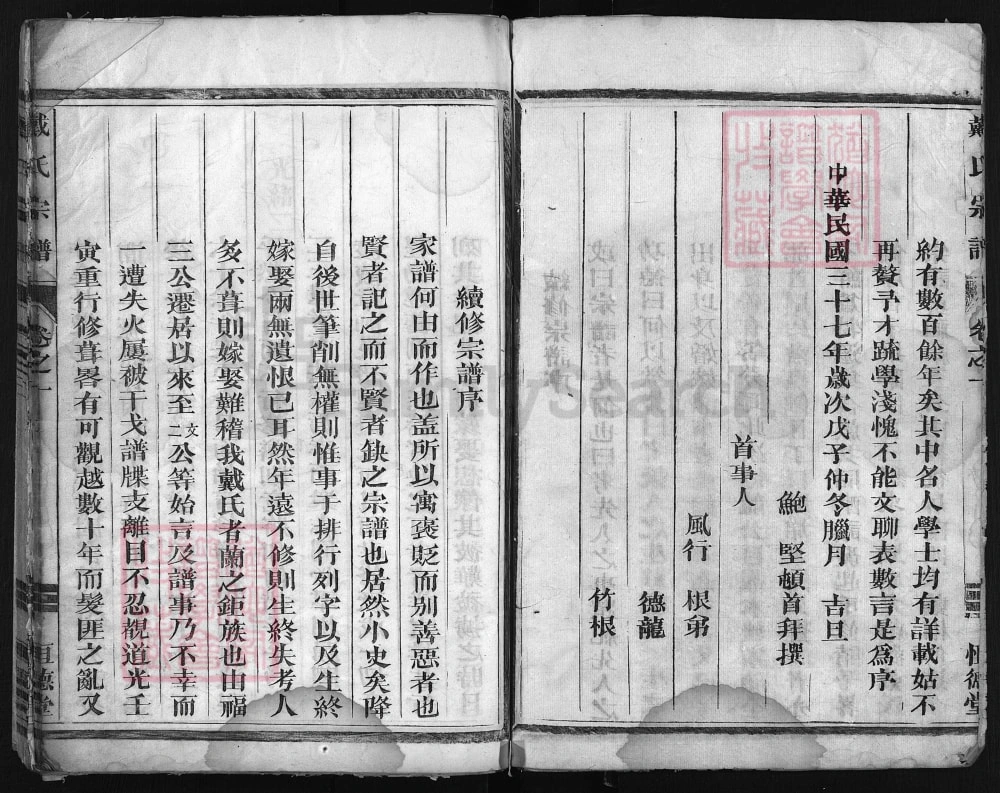 戴氏宗譜
卷之一
恒德堂
約有數百餘年矣其中名人學士均有詳載姑不
再贅予才疏學淺愧不能文聊表數言是爲序
中華民國三十七年歲次戊子仲冬臘月 吉旦
鮑 堅頓首拜撰
首事人
風行 根弟
德龍
竹根
續修宗譜序
家譜何由而作也盖所以寓褒貶而別善惡者也
賢者記之而不賢者缺之宗譜也居然小史矣降
自後世筆削無權則惟事于排行列字以及生終
嫁娶兩無遺恨已耳然年遠不修則生終失考人
多不葺則嫁娶難稽我戴氏者蘭之鉅族也由福
三公遷居以來至文二公等始言及譜事乃不幸而
一遭失火屢被干戈譜牒支離目不忍覩道光壬
寅重行修葺畧有可觀越數十年而髮匪之亂又
戴氏宗譜
卷之一
恒德堂